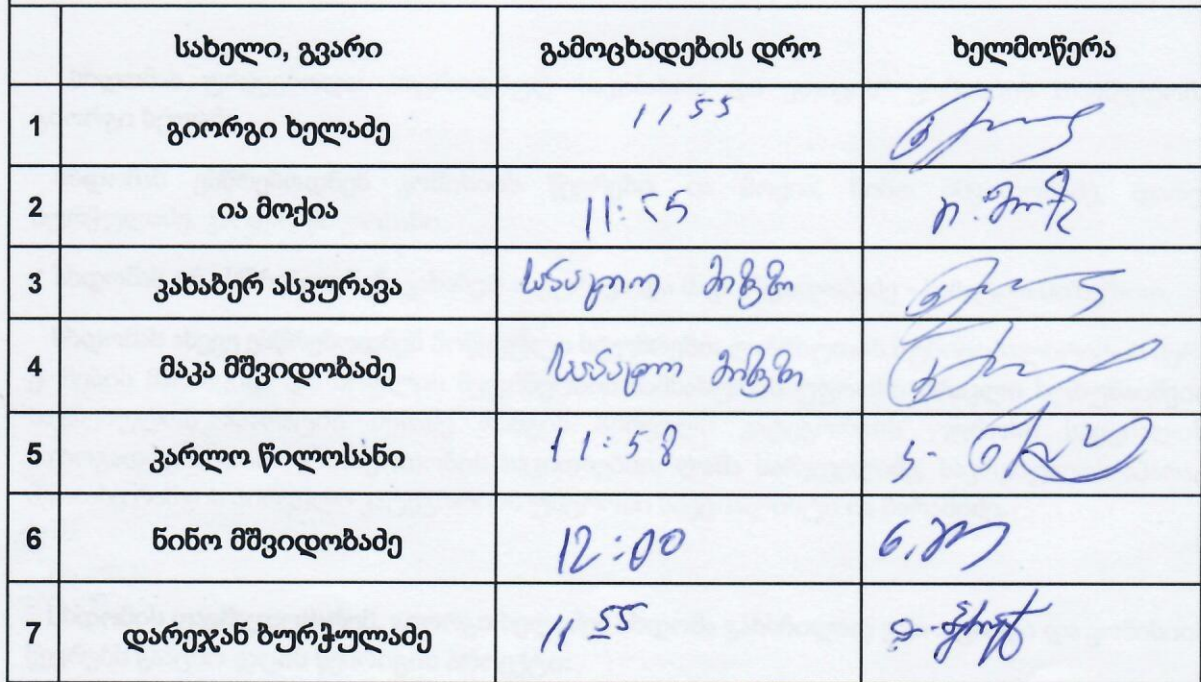 სახელი, გვარი გამოცხადების დრო ხელმოწერა
1 გიორგი ხელაძე 11 55
2 ია მოქია 11:55
3 კახაბერ ასკურავა საპატიო მიზეზი
4 მაკა მშვიდობაძე საპატიო მიზეზი
5 კარლო წილოსანი 11:58
6 ნინო მშვიდობაძე 12:00
7 დარეჯან ზურჭულაძე 11 55